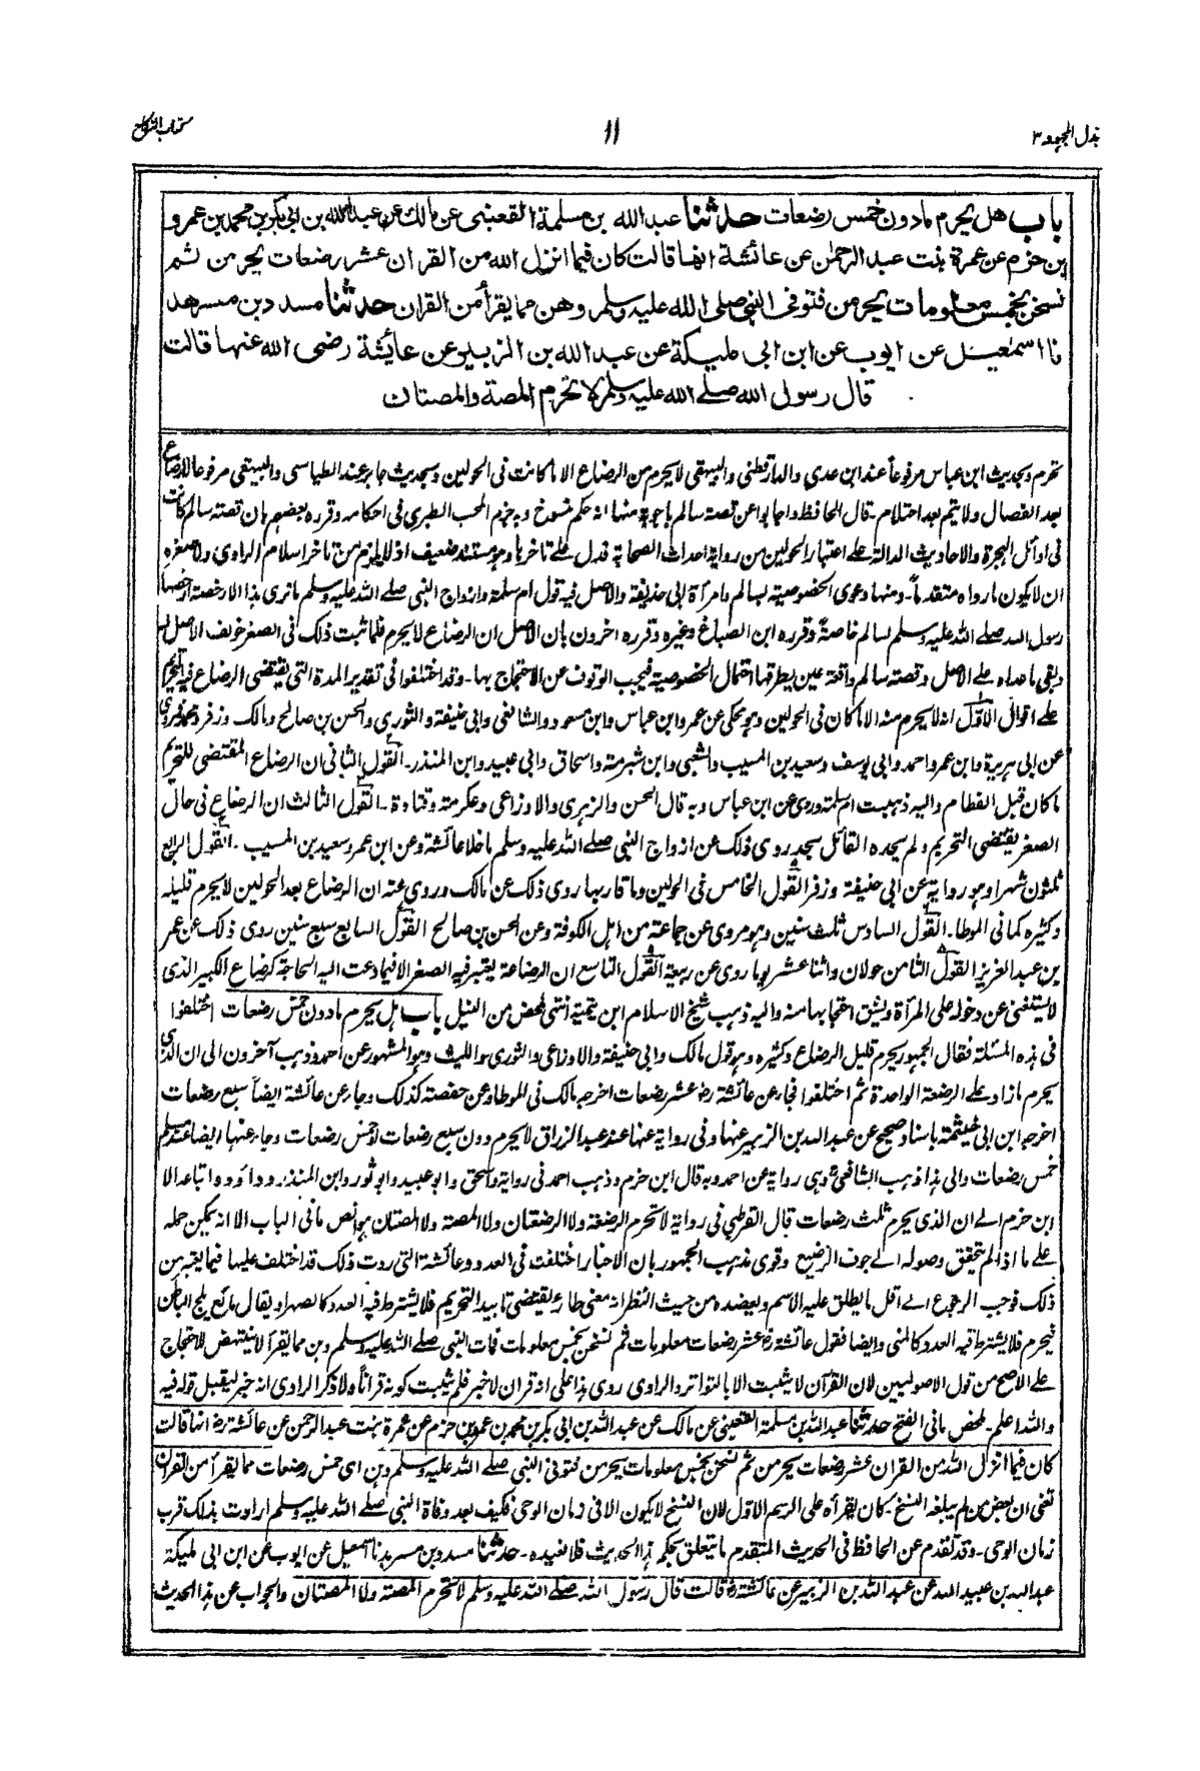 بذل المجهود ٣
١١
كتاب النكاح
باب هل يحرم مادون خمس رضعات حدثنا عبد الله بن مسلمة القعنبى عن مالك عن عبد الله بن ابى بكر بن محمد بن عمرو
ابن حزم عن عمرة بنت عبد الرحمٰن عن عائشة انها قالت كان فيما انزل الله من القران عشر رضعات يحرمن ثم
نسخن بخمس معلومات يحرمن فتوفى النبى صلى الله عليه وسلم وهن مما يقرأ من القران حدثنا مسدد بن مسرهد
نا اسمٰعيل عن ايوب عن ابن ابى مليكة عن عبد الله بن الزبير عن عائشة رضى الله عنها قالت
قال رسول الله صلے الله عليه وسلم لا تحرم المصة والمصتان
تحرم وبحديث ابن عباس مرفوعاً عند ابن عدى والدارقطنى والبيهقى لا يحرم من الرضاع الا ما كانت فى الحولين وبحديث جابر عند الطيالسى والبيهقى مرفوعا لا رضاع
بعد الفصال ولا يتم بعد احتلام۔ قال الحافظ واجابوا عن قصة سالم باجوبة منها انه حكم منسوخ وبه جزم المحب الطبرى فى احكامه وقرره بعضهم بان قصة سالم كانت
فى اوائل الهجرة والاحاديث الدالة على اعتبار الحولين من رواية احداث الصحابة فدل على تاخرها وهو مستند ضعيف اذ لا يلزم من تاخر اسلام الراوى ولا صغره
ان لا يكون ما رواه متقدماً۔ ومنها دعوى الخصوصية بسالم وامرأة ابى حذيفة والاصل فيه قول ام سلمة وازواج النبى صلے الله عليه وسلم ما نرى هذا الا رخصة ارخصها
رسول الله صلے الله عليه وسلم لسالم خاصة وقرره ابن الصباغ وغيره وقرره اخرون بان الاصل ان الرضاع لا يحرم فلما ثبت ذلك فى الصغر خولف الاصل له
وبقى ما عداه على الاصل وقصة سالم واقعة عين يطرقها احتمال الخصوصية فيجب الوقوف عن الاحتجاج بها۔ وقد اختلفوا فى تقدير المدة التى يقتضى الرضاع فيها التحريم
على اقوال الاول انه لا يحرم منه الا ما كان فى الحولين وهو يحكى عن عمر وابن عباس وابن مسعود والشافعى وابى حنيفة والثورى والحسن بن صالح ومالك وزفر ومحمد وروى
عن ابى هريرة وابن عمر واحمد وابى يوسف وسعيد بن المسيب والشعبى وابن شبرمة واسحاق وابى عبيد وابن المنذر۔ القول الثانى ان الرضاع المقتضى للتحريم
ما كان قبل الفطام واليه ذهبت ام سلمة وروى عن ابن عباس وبه قال الحسن والزهرى والاوزاعى وعكرمة وقتادة۔ القول الثالث ان الرضاع فى حال
الصغر يقتضى التحريم ولم يحده القائل بحد روى ذلك عن ازواج النبى صلے الله عليه وسلم ما خلا عائشة وعن ابن عمر وسعيد بن المسيب۔ القول الرابع
ثلثون شهرا وهو رواية عن ابى حنيفة وزفر القول الخامس فى الحولين وما قاربها روى ذلك عن مالك وروى عنه ان الرضاع بعد الحولين لا يحرم قليله
وكثيره كما فى الموطا۔ القول السادس ثلث سنين وهو مروى عن جماعة من اهل الكوفة وعن الحسن بن صالح القول السابع سبع سنين روى ذلك عن عمر
بن عبد العزيز القول الثامن حولان واثنا عشر يوما روى عن ربيعة القول التاسع ان الرضاعة يعتبر فيه الصغر الا فيما دعت اليه الحاجة كرضاع الكبير الذى
لا يستغنى عن دخوله على المرأة ويشق احتجابها منه واليه ذهب شيخ الاسلام ابن تيمية انتهى ملخص من النيل باب هل يحرم مادون خمس رضعات اختلفوا
فى هذه المسئلة فقال الجمهور يحرم قليل الرضاع وكثيره وهو قول مالك وابى حنيفة والاوزاعى والثورى والليث وهو المشهور عن احمد وذهب آخرون الى ان الذى
يحرم ما زاد على الرضعة الواحدة ثم اختلفوا فجاء عن عائشة رض عشر رضعات اخرجه مالك فى الموطا وعن حفصة كذلك وجاء عن عائشة ايضا سبع رضعات
اخرجه ابن ابى خيثمة باسناد صحيح عن عبد الله بن الزبير عنها وفى رواية عنها عند عبد الرزاق لا يحرم دون سبع رضعات او خمس رضعات وجاء عنها ايضا عند مسلم
خمس رضعات والى هذا ذهب الشافعى وهى رواية عن احمد وبه قال ابن حزم وذهب احمد فى رواية واسحق وابو عبيد وابو ثور وابن المنذر وداؤد واتباعه الا
ابن حزم الے ان الذى يحرم ثلث رضعات قال القرطبى فى رواية لا تحرم الرضعة ولا الرضعتان ولا المصة ولا المصتان هو انص ما فى الباب الا انه يمكن حمله
على ما اذا لم تحقق وصوله الے جوف الرضيع وقوى مذهب الجمهور بان الاخبار اختلفت فى العدد وعائشة التى روت ذلك قد اختلف عليها فيما يعتبر من
ذلك فوجب الرجوع الے اقل ما يطلق عليه الاسم ويعضده من حيث النظر انه معنى طارئ يقتضى تابيد التحريم فلا يشترط فيه العدد كالصهر او يقال مائع يلج الباطن
فيحرم فلا يشترط فيه العدد كالمنى وايضا فقول عائشة رض عشر رضعات معلومات ثم نسخن بخمس معلومات فمات النبى صلے الله عليه وسلم وهن مما يقرأ لا ينتهض للاحتجاج
على الاصح من قول الاصوليين لان القرآن لا يثبت الا بالتواتر والراوى روى هذا على انه قران لا خبر فلم يثبت كونه قرآناً ولا ذكر الراوى انه خبر ليقبل قوله فيه
والله اعلم۔ ملخص ما فى الفتح حدثنا عبد الله بن مسلمة القعنبى عن مالك عن عبد الله بن ابى بكر بن محمد بن عمرو بن حزم عن عمرة بنت عبد الرحمن عن عائشة رض انها قالت
كان فيما انزل الله من القران عشر رضعات يحرمن ثم نسخن بخمس معلومات يحرمن فتوفى النبى صلے الله عليه وسلم وهن اى خمس رضعات مما يقرأ من القران
تعنى ان بعض من لم يبلغه النسخ كان يقرأه على الرسم الاول لان النسخ لا يكون الا فى زمان الوحى فكيف بعد وفاة النبى صلے الله عليه وسلم ارادت بذلك قرب
زمان الوحى۔ وقد تقدم عن الحافظ فى الحديث المتقدم ما يتعلق بحكم هذا الحديث فلا نعيده۔ حدثنا مسدد بن مسرهد نا اسمعيل عن ايوب عن ابن ابى مليكة
عبد الله بن عبيد الله عن عبد الله بن الزبير عن عائشة رض قالت قال رسول الله صلے الله عليه وسلم لا تحرم المصة ولا المصتان والجواب عن هذا الحديث